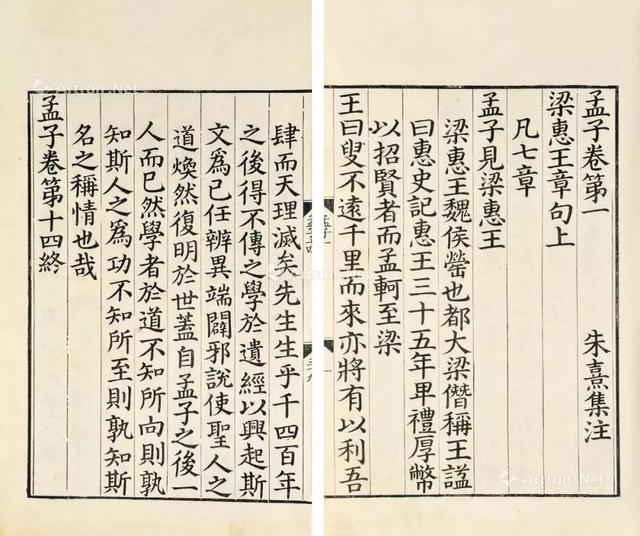 孟子卷第一
梁惠王章句上　朱熹集注
凡七章
孟子見梁惠王
梁惠王魏侯罃也都大梁僭稱王諡
曰惠史記惠王三十五年卑禮厚幣
以招賢者而孟軻至梁
王曰叟不遠千里而來亦將有以利吾
肆而天理滅矣先生生乎千四百年
之後得不傳之學於遺經以興起斯
文爲己任辨異端闢邪說使聖人之
道煥然復明於世蓋自孟子之後一
人而已然學者於道不知所向則孰
知斯人之爲功不知所至則孰知斯
名之稱情也哉
孟子卷第十四終
Artron.Net
Artron.Net